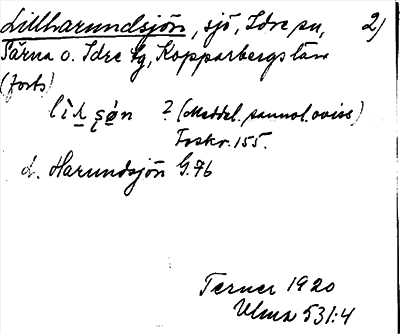 Lillharundsjön, sjö, Idre sn, 2)
Särna o. Idre tg, Kopparbergs län
(forts)
? (Meddel. sannol. oviss)
Foskr. 155.
L. Harundsjön G.76
Terner 1920
Ulma 531:4